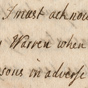 I must ackno
Warren when
sons in adverse